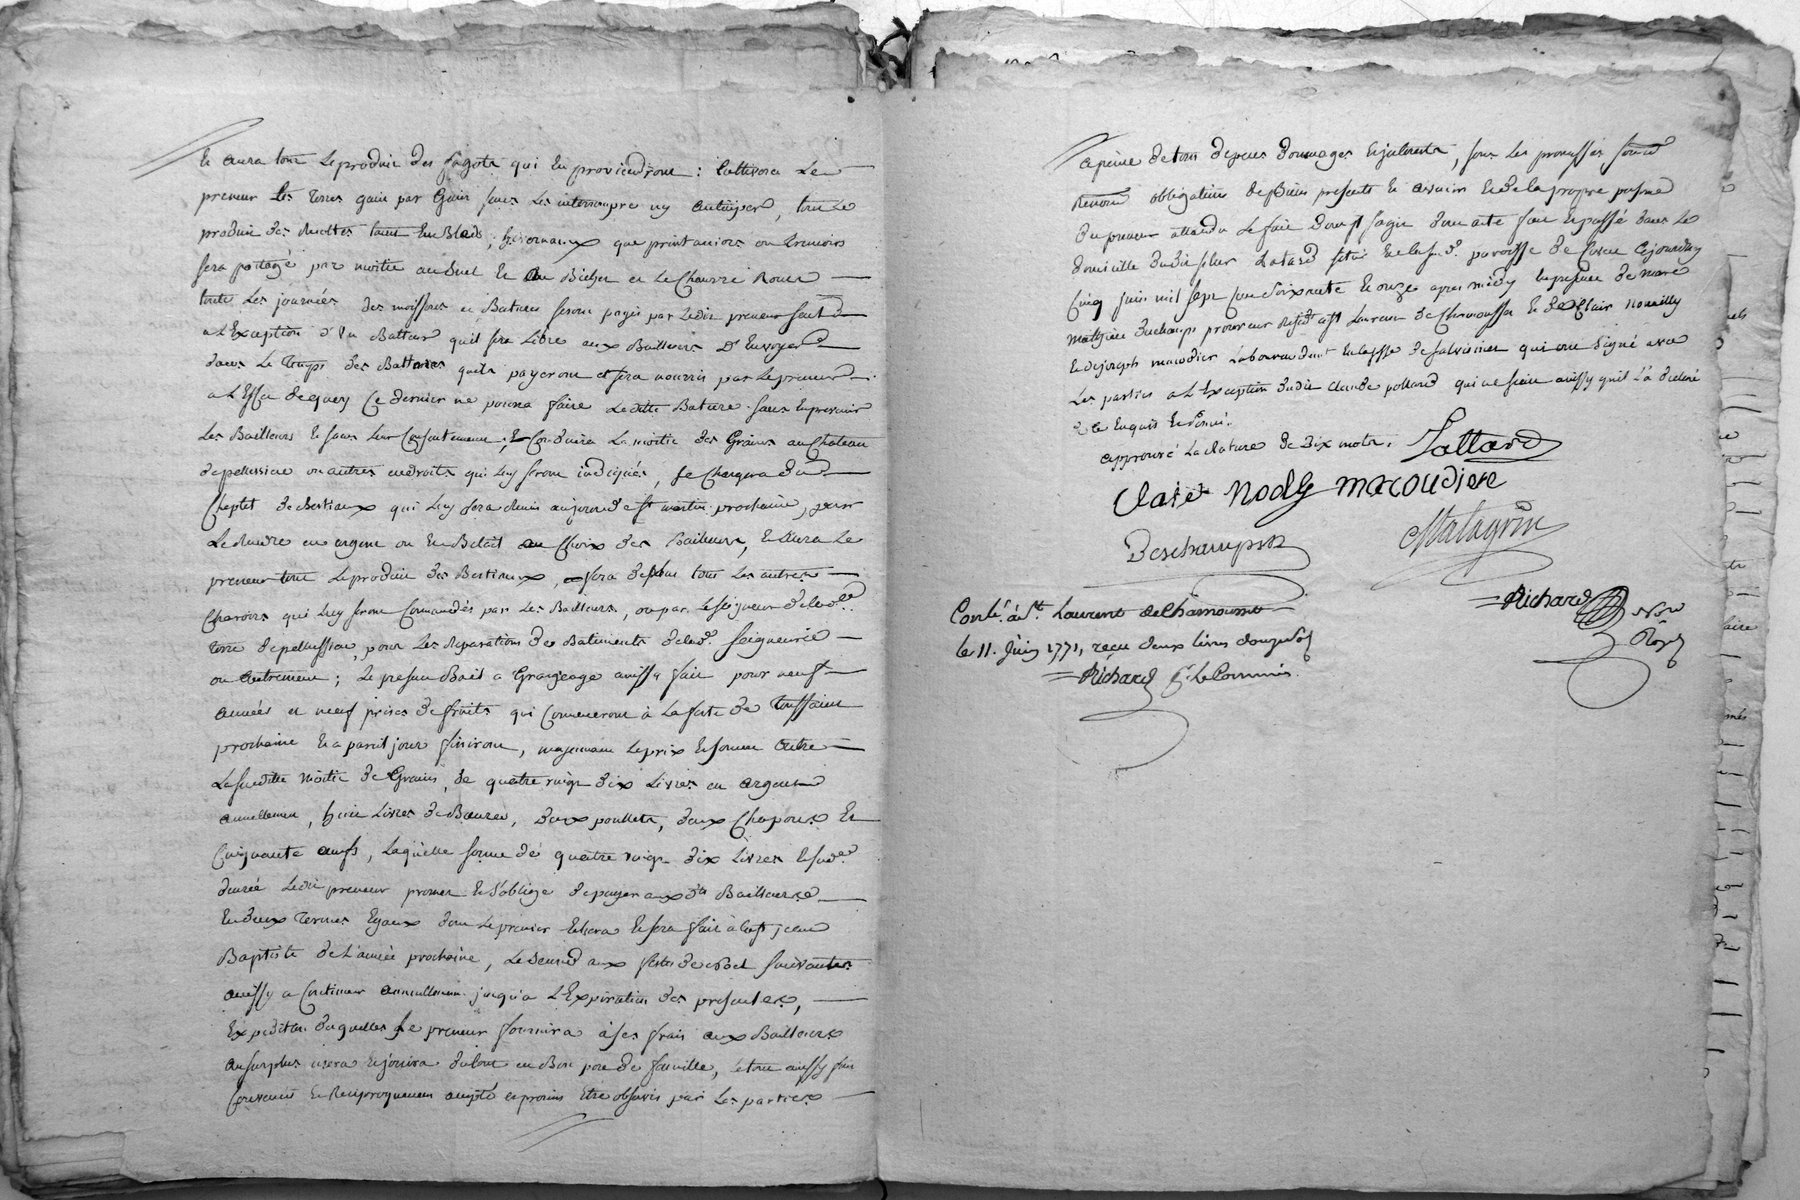 Et aura tout le produit des fagots qui en proviendront : Cultivera le
preneur les terres gain par Gain sans les interrompre ny anticiper, tout le
produit des recoltes tant En Bleds, hivernaux que printaniers ou tremois
sera partagé par moitié au Suel Et au Bicher et le Chanvre Roui
toute les journées des moissons et Batures seront payés par ledit preneur seul
a l'Exception d'un Batteur qu'il sera libre aux Bailleurs D'Envoyer
dans le temps des Battures quils payeront et sera nourris par le preneur
a l'Effet de quoy Ce dernier ne poura faire ladite Bature sans En prevenir
les Bailleurs Et sans leur Consentement ; Et Conduira la moitié des Grains au Chateau
de pellussieu ou autres endroits qui luy seront indiqués, se Chargera du
Cheptel de Bestiaux qui luy sera remis au jour de st martin prochaine, pour
le Rendre en argent ou En Betail au Choix des Bailleurs, Et aura le
preneur tout le produit des Bestiaux, fera de plus tous les autres
Charois qui luy seront Comandés par les Bailleurs, ou par le seigneur de lad.
terre de pellussieu, pour les Reparations des Batiments de lad. Seigneurie
ou autrement ; le present Bail a Grangeage aussy fait pour neuf
années et neuf prises de fruits qui Commenceront à la feste de toussaint
prochaine Et a pareil jour finiront, moyennant le prix Et somme outre
la susditte moitié de Grains, de quatre vingt dix livres en argent
annuellement, huit livres de Bœurre, deux poullets, deux Chapons Et
Cinquante œufs, laquelle somme de quatre vingt dix livres Et sud.
denrée ledit preneur promet Et s'oblige de payer aux dts Bailleurs
En deux termes Egaux dont le premier Echera Et sera fait à la st jean
Baptiste de l'année prochaine, le second aux festes de noel suivantes
aussy a Continuer annuellement jusqu'a l'Expiration des presentes,
Expedition desquelles le preneur fournira à ses frais aux Bailleurs
au surplus usera Et jouira du tout en Bon pere de famille, le tout aussy fait
Convenu Et Reciproquement accepté et promis Etre observé par les parties
a peine de tous depens domages Et interests, sous les promesses soumd
Renond obligation de Biens presents Et avenir Et de la propre personne
du preneur attendu le fait dont st sagit dont acte fait Et passé dans le
domicille dudit sieur situé En lad. paroisse de Cejourdhuy
Cinq juin mil sept Cent Soixante Et onze apres midy En presence de mtre
mathieu duchamps procureur residt a st Laurent de Chamousset Et de Clair
Et de joseph macodier Laboureur dmt En la psse de qui ont signé avec
les parties a l'Exception dudit claude pollard qui ne scait aussy qu'il l'a declaré
de ce Enquis Et somé.
approuvé la Rature de Dix mots.
Claie Nody macoudiere
Deschamps
Matagrin
Richard Nore Royal
Conlé. à St. Laurent de Chamousset
le 11. juin 1771, reçu deux livres douze sols
Richard pr. le Commis.